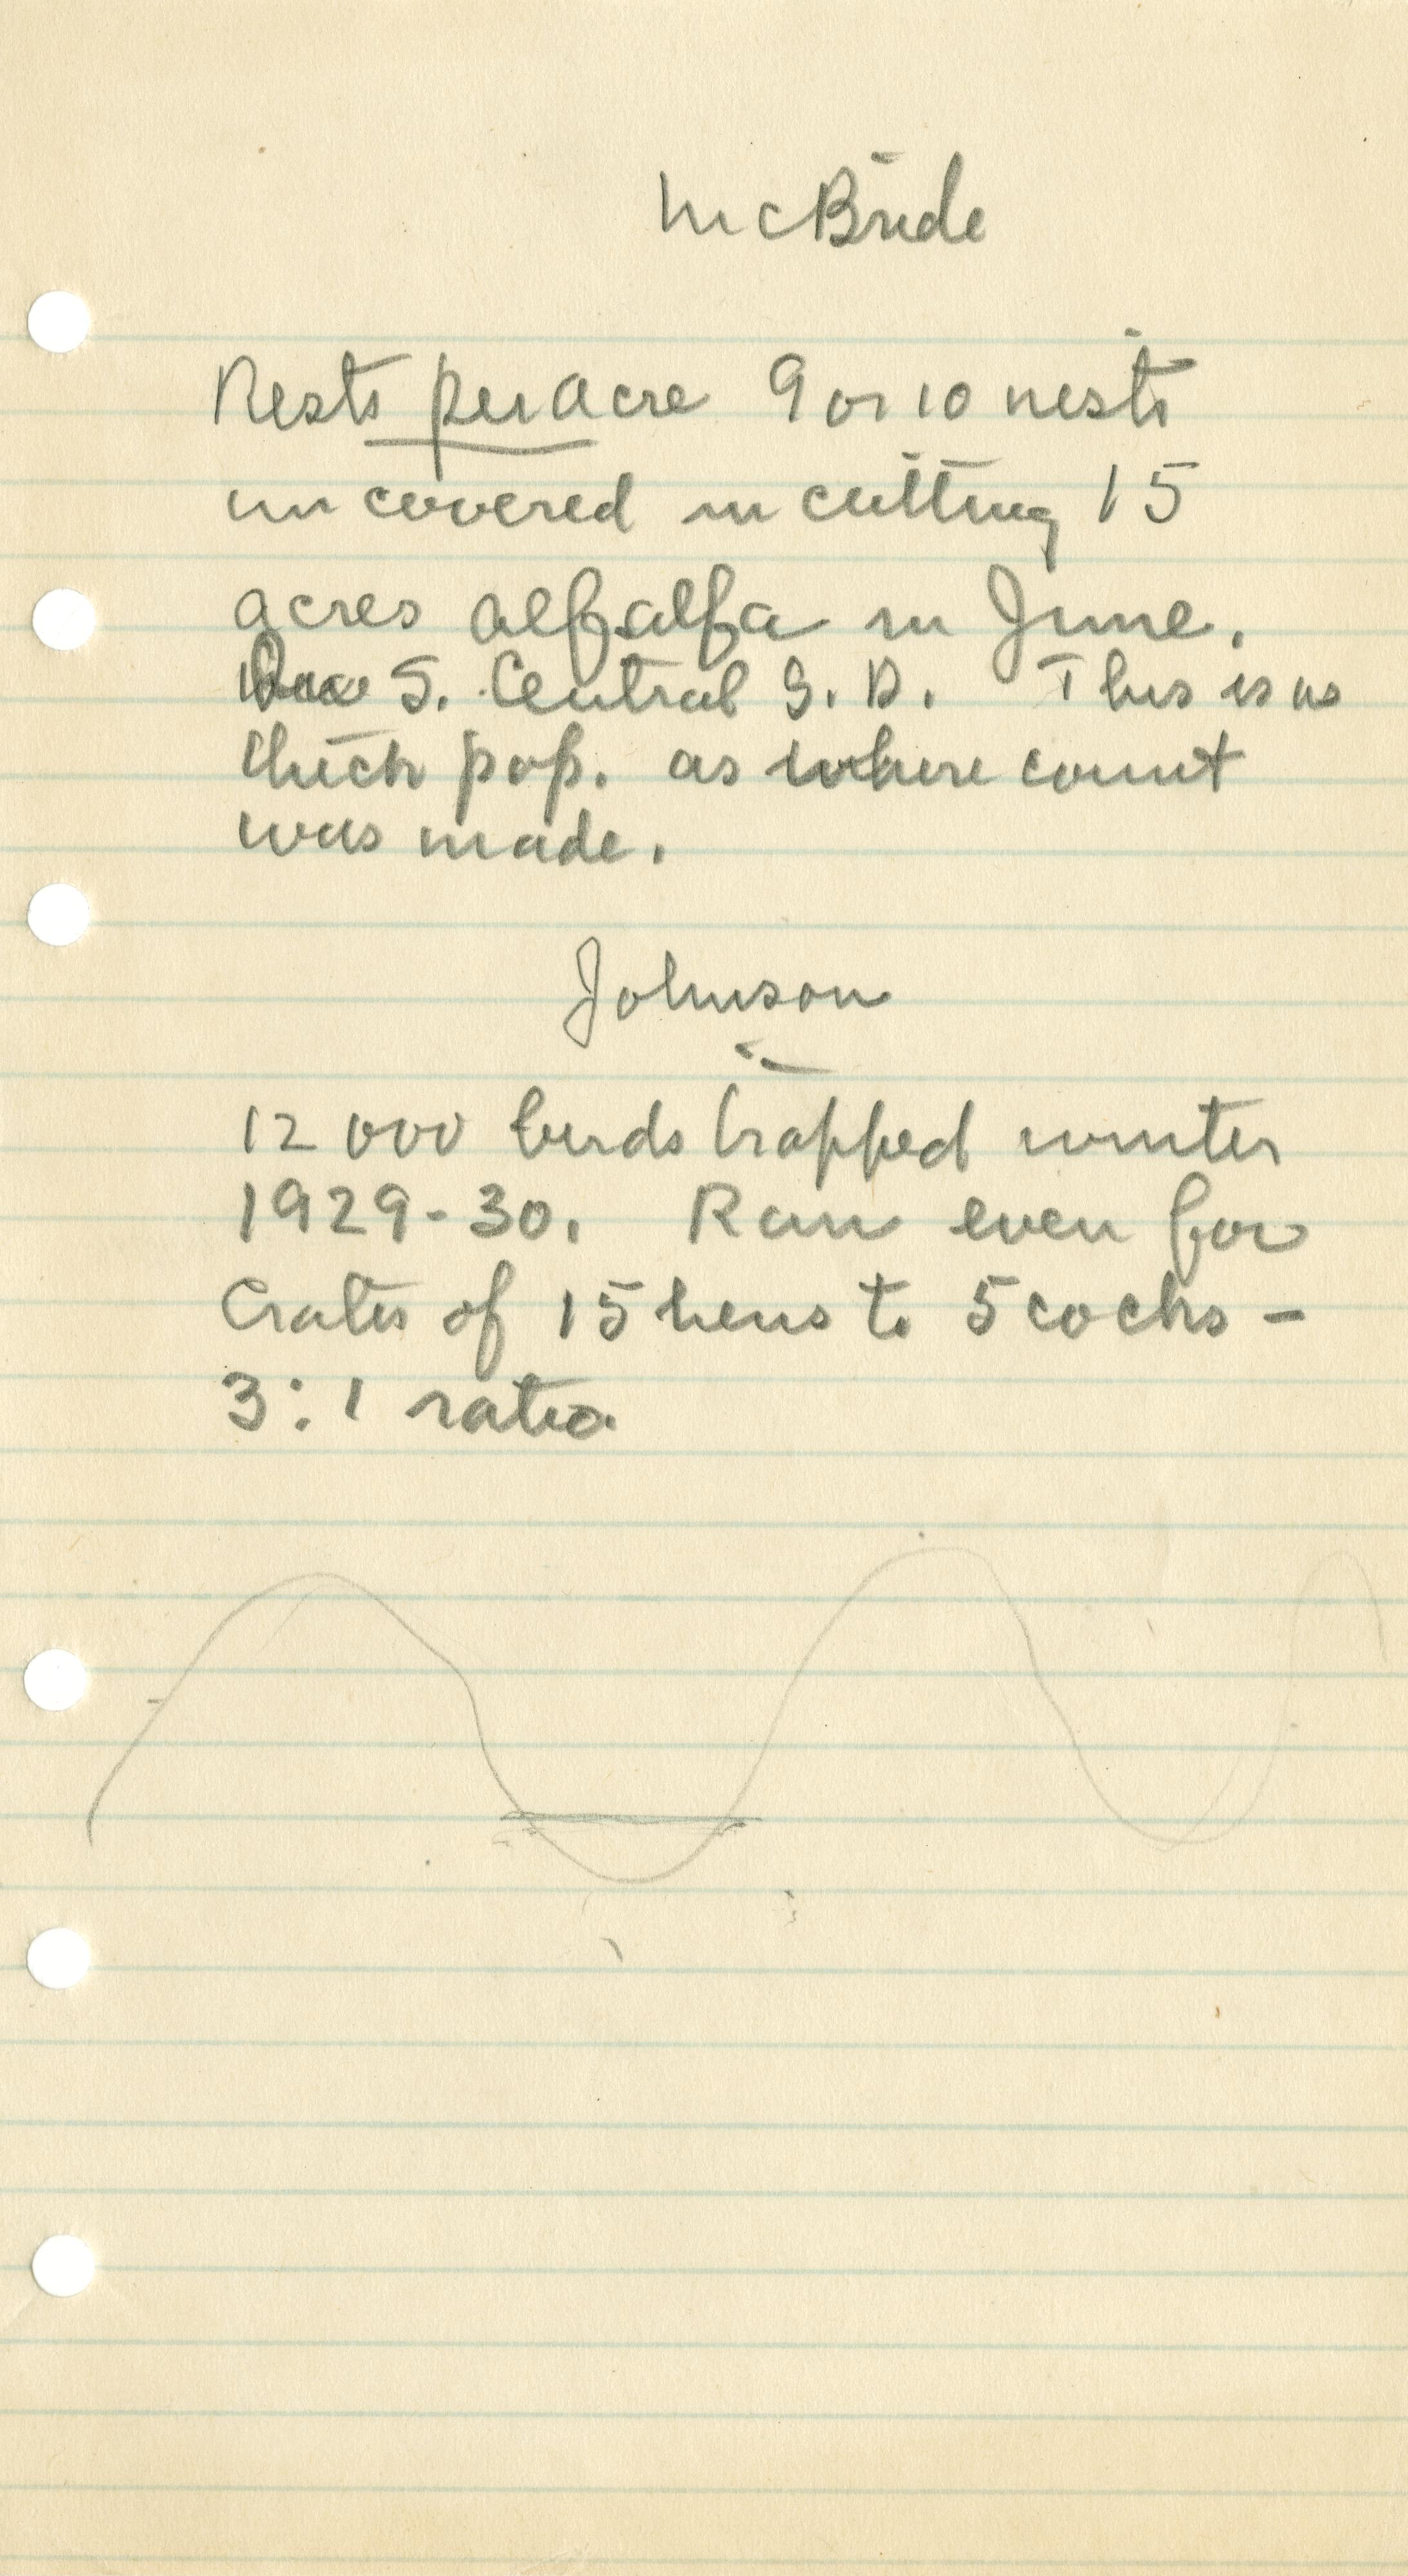 McBride
Nests per acre 9 or 10 nests
uncovered in cutting 15
acres alfalfa in June.
S. Central S. D. This is as
thick pop. as where count
was made.
Johnson
12000 birds trapped winter
1929-30. Ran even for
Crates of 15 hens to 5 cocks -
3:1 ratio